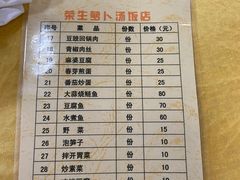 荣生萝卜汤饭店
序号 菜品 份数 价格(元)
17 豆豉回锅肉 份 30
18 青椒肉丝 份 30
19 麻婆豆腐 份 20
20 春芽煎蛋 份 20
21 番茄炒蛋 份 20
22 大蒜烧鲢鱼 份
23 豆腐鱼 份
24 水煮鱼 份
25 野菜 份
26 泡笋子 份 10
27 拌开胃菜 份 10
28 炒素菜 份